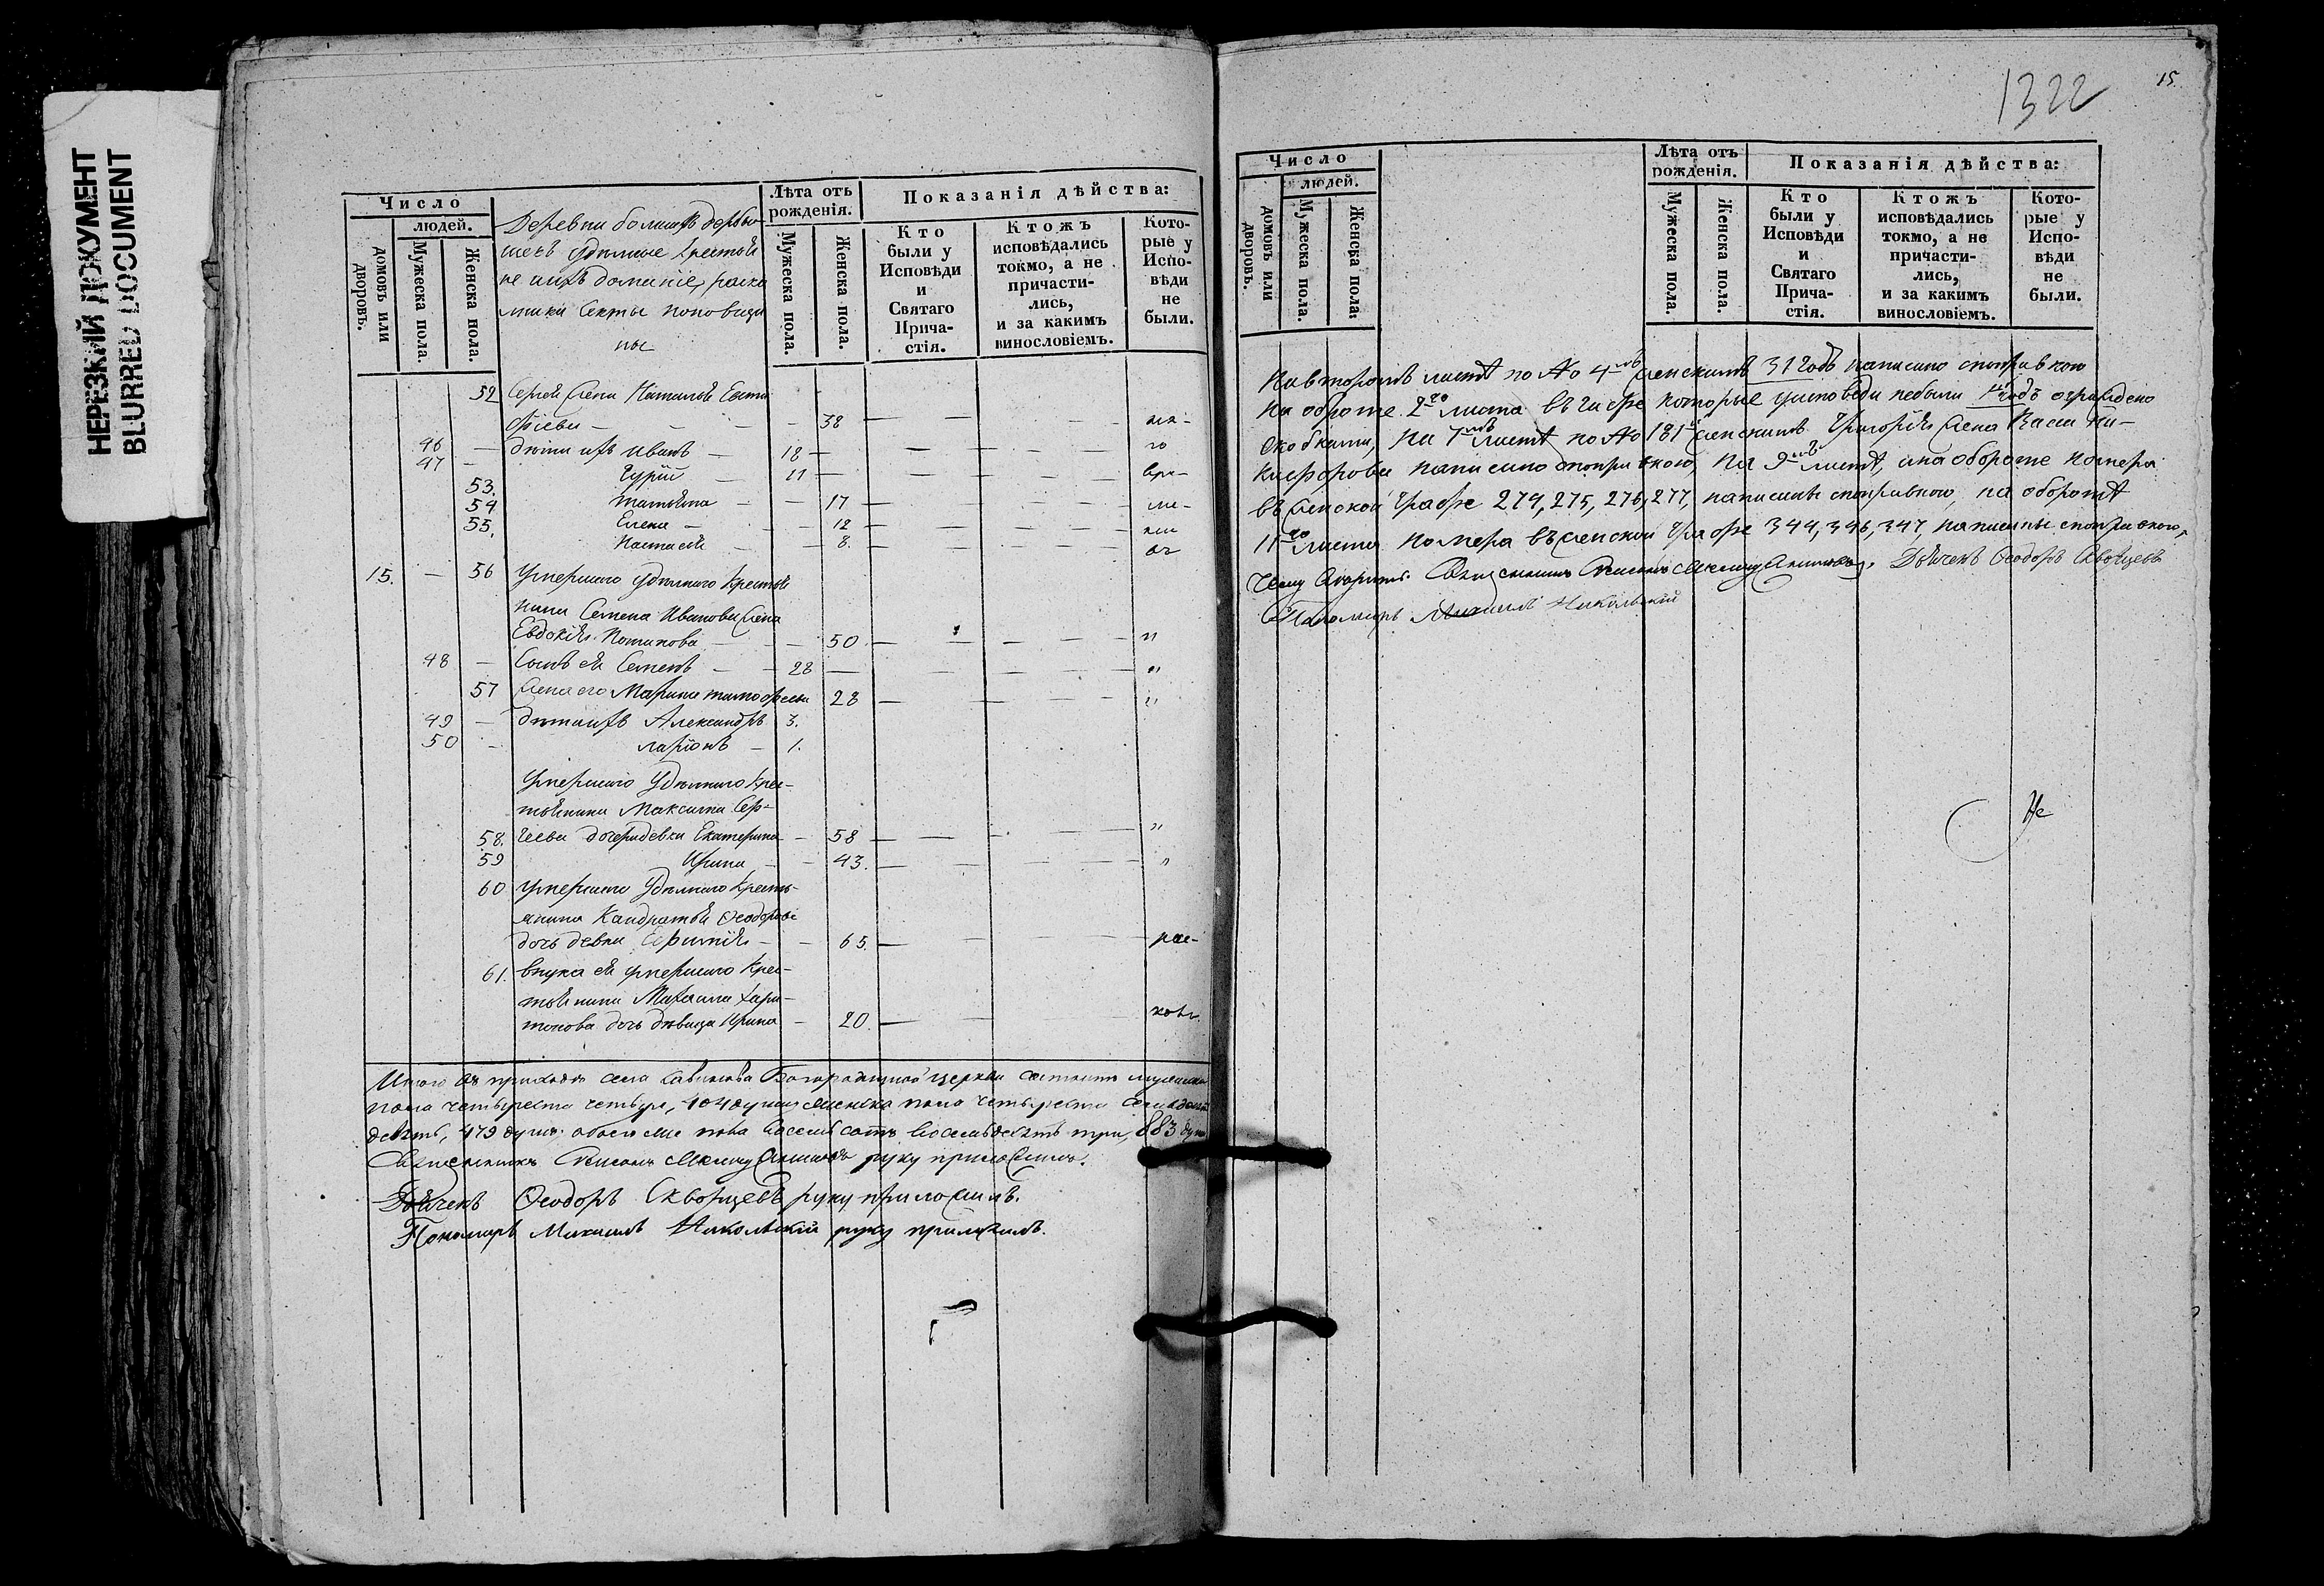 НЕРЕЗКИЙ ДОКУМЕНТ
BLURRED DOCUMENT
Число
людей.
домовъ или дворовъ.
Мужеска пола.
Женска пола.
Деревни
удѣльные крестья
не и ихъ домашніе, раско
ники секты поповщи
ны
Лѣта отъ рожденія.
Мужеска пола.
Женска пола.
Показанія дѣйства:
Кто были у Исповѣди и Святаго Прича-стія.
Ктожъ исповѣдались токмо, а не причасти-лись, и за какимъ винословіемъ.
Кото-рые у Испо-вѣди не были.
52 Сергея жена Наталья
38 — — — ма-
46 — дѣти ихъ Иванъ — 18 — — — го
47 — Гурій — 11 — — — врѣ-
53. Татьяна — — 17 — — —
54 Елена — — 12 — — —
55. Настасья — — 8. — — —
15. — 56 Умершаго удѣльнаго крестья
нина Семена Иванова жена
Евдокія Потапова — — 50 — — — "
48 — Сынъ ея Семенъ — — 28 — — — "
57 Жена его Марина Тимофеева 28 — — — "
49 — дѣти ихъ Александръ 3.
50 — Ларіонъ — 1.
Умершаго удѣльнаго кре-
стьянина Максима Сер-
58. геева дочери девки Екатерина — 58 — — — "
59 Ирина — — 43. — — — "
60 Умершаго удѣльнаго кресть-
янина Кандратья Феодорова
дочь девка — — 65. — — — рас-
61. внука ея умершаго кре-
стьянина Хари-
тонова дочь дѣвица Ирина — 20. — — —
Итого въ приходѣ села Богородицкой церкви состоитъ мужеска
пола четыреста четыре, 404 души женска пола четыреста семьдесятъ
девять, 479 душъ. обоего же пола восемь сотъ восемьдесятъ три, 883 души
Священникъ руку приложилъ.
Дьячекъ Феодоръ Скворцевъ руку приложилъ.
Пономарь Михаилъ Никольскій руку приложилъ.
1322
15
Число
людей.
домовъ или дворовъ.
Мужеска пола.
Женска пола:
Лѣта отъ рожденія.
Мужеска пола.
Женска пола.
Показанія дѣйства:
Кто были у Исповѣди и Святаго Прича-стія.
Ктожъ исповѣдались токмо, а не причасти-лись, и за какимъ винословіемъ.
Кото-рые у Испо-вѣди не были.
На второмъ листѣ по № 4мъ женскимъ 31 годъ написано споправкою
На обороте 2го листа въ графе которые уисповеди небыли годъ ограждено
скобками, на 7мъ листѣ по № 181 женскимъ Григорья жена Ни-
кифорова написано споправкою, На 9мъ листѣ, и на обороте номера
въ женской графе 274, 275, 276, 277, написаны споправкою, на оборотѣ
11го листа номера въ женской графе 344, 346, 347, написаны споправкою,
Священникъ Дьячекъ Феодоръ Скворцевъ
Пономарь Михаилъ Никольскій
Не